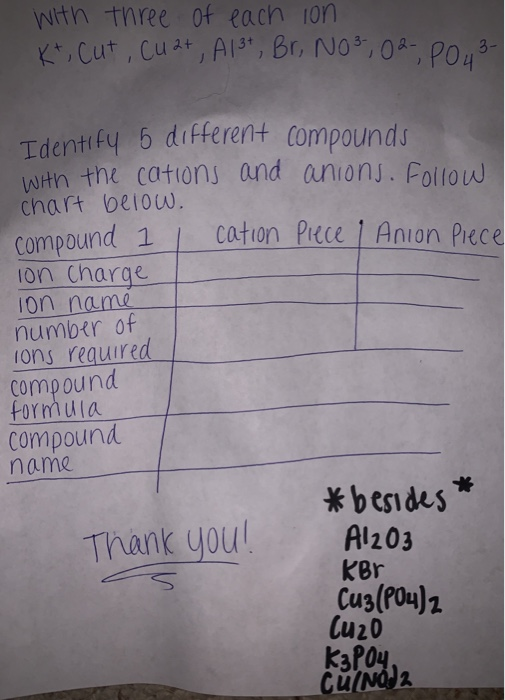 with three of each ion
K+, Cu+, Cu2+, Al3+, Br, NO3-, O2-, PO4 3-
Identify 5 different compounds
with the cations and anions. Follow
chart below.
compound 1 | cation Piece | Anion Piece
ion charge
ion name
number of
ions required
compound
formula
compound
name
*besides*
Thank you!
Al2O3
KBr
Cu3(PO4)2
Cu2O
K3PO4
Cu(NO3)2